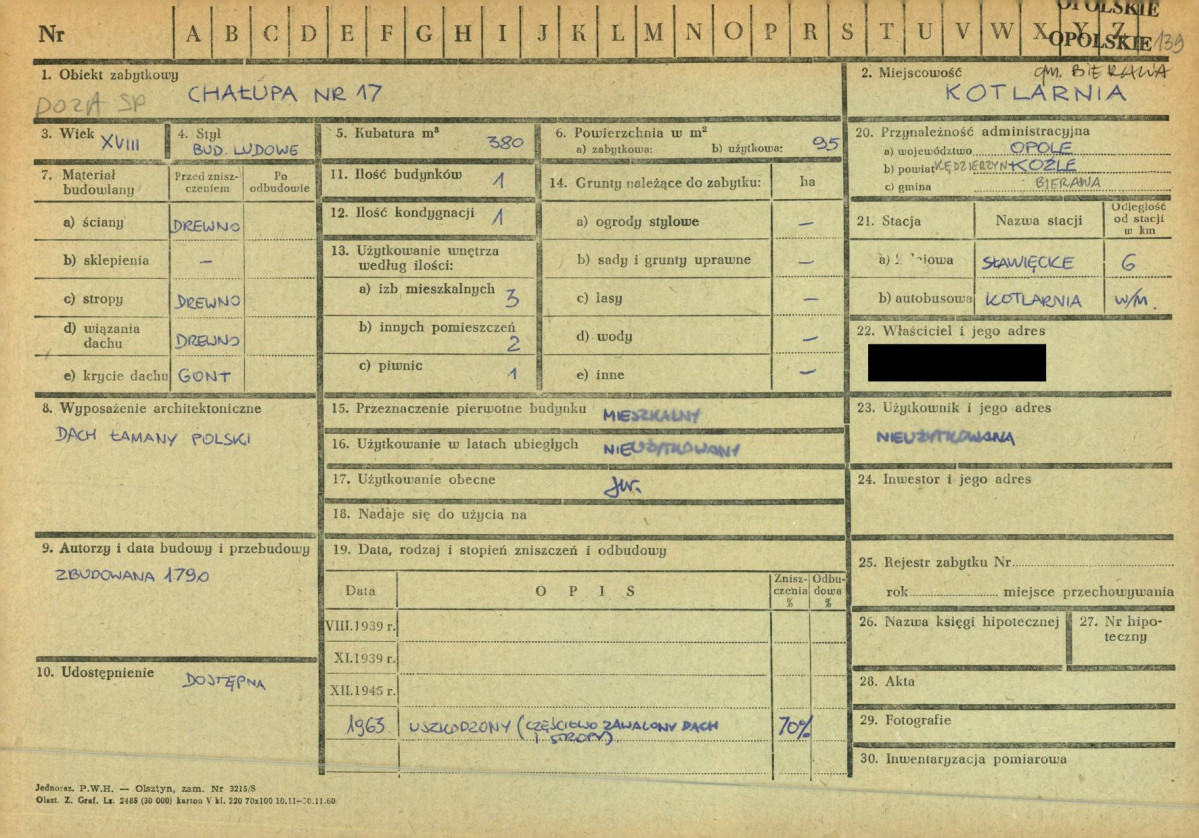 OPOLSKIE
Nr A B C D E F G H I J K L M N O P R S T U V W X Y Z
OPOLSKIE 139
1. Obiekt zabytkowy
CHAŁUPA NR 17
2. Miejscowość gm. BIERAWA
KOTLARNIA
3. Wiek XVIII
4. Styl
BUD. LUDOWE
5. Kubatura m³ 380
6. Powierzchnia w m²
a) zabytkowa: b) użytkowa: 95
7. Materiał budowlany
Przed znisz-
czeniem
Po
odbudowie
a) ściany DREWNO
b) sklepienia —
c) stropy DREWNO
d) wiązania
dachu DREWNO
e) krycie dachu GONT
8. Wyposażenie architektoniczne
DACH ŁAMANY POLSKI
9. Autorzy i data budowy i przebudowy
ZBUDOWANA 1790
10. Udostępnienie DOSTĘPNA
11. Ilość budynków 1
12. Ilość kondygnacji 1
13. Użytkowanie wnętrza
według ilości:
a) izb mieszkalnych 3
b) innych pomieszczeń 2
c) piwnic 1
14. Grunty należące do zabytku: ha
a) ogrody stylowe —
b) sady i grunty uprawne —
c) lasy —
d) wody —
e) inne —
15. Przeznaczenie pierwotne budynku MIESZKALNY
16. Użytkowanie w latach ubiegłych NIEUŻYTKOWANY
17. Użytkowanie obecne jw.
18. Nadaje się do użycia na
19. Data, rodzaj i stopień zniszczeń i odbudowy
Data O P I S
Znisz-
czenia
%
Odbu-
dowa
%
VIII.1939 r.
XI.1939 r.
XII.1945 r.
1963 USZKODZONY (CZĘŚCIOWO ZAWALONY DACH 70%
I STROPY)
20. Przynależność administracyjna
a) województwo OPOLE
b) powiat KĘDZIERZYN KOŹLE
c) gmina BIERAWA
21. Stacja Nazwa stacji
Odległość
od stacji
w km
a) SŁAWIĘCICE 6
b) autobusowa KOTLARNIA w/m.
22. Właściciel i jego adres
23. Użytkownik i jego adres
NIEUŻYTKOWANA
24. Inwestor i jego adres
25. Rejestr zabytku Nr
rok miejsce przechowywania
26. Nazwa księgi hipotecznej
27. Nr hipo-
teczny
28. Akta
29. Fotografie
30. Inwentaryzacja pomiarowa
Jednoraz. P.W.H. — Olsztyn, zam. Nr 3215/S
Olszt. Z. Graf. Lz. 2485 (30 000) karton V kl. 220 70x100 10.11—30.11.60